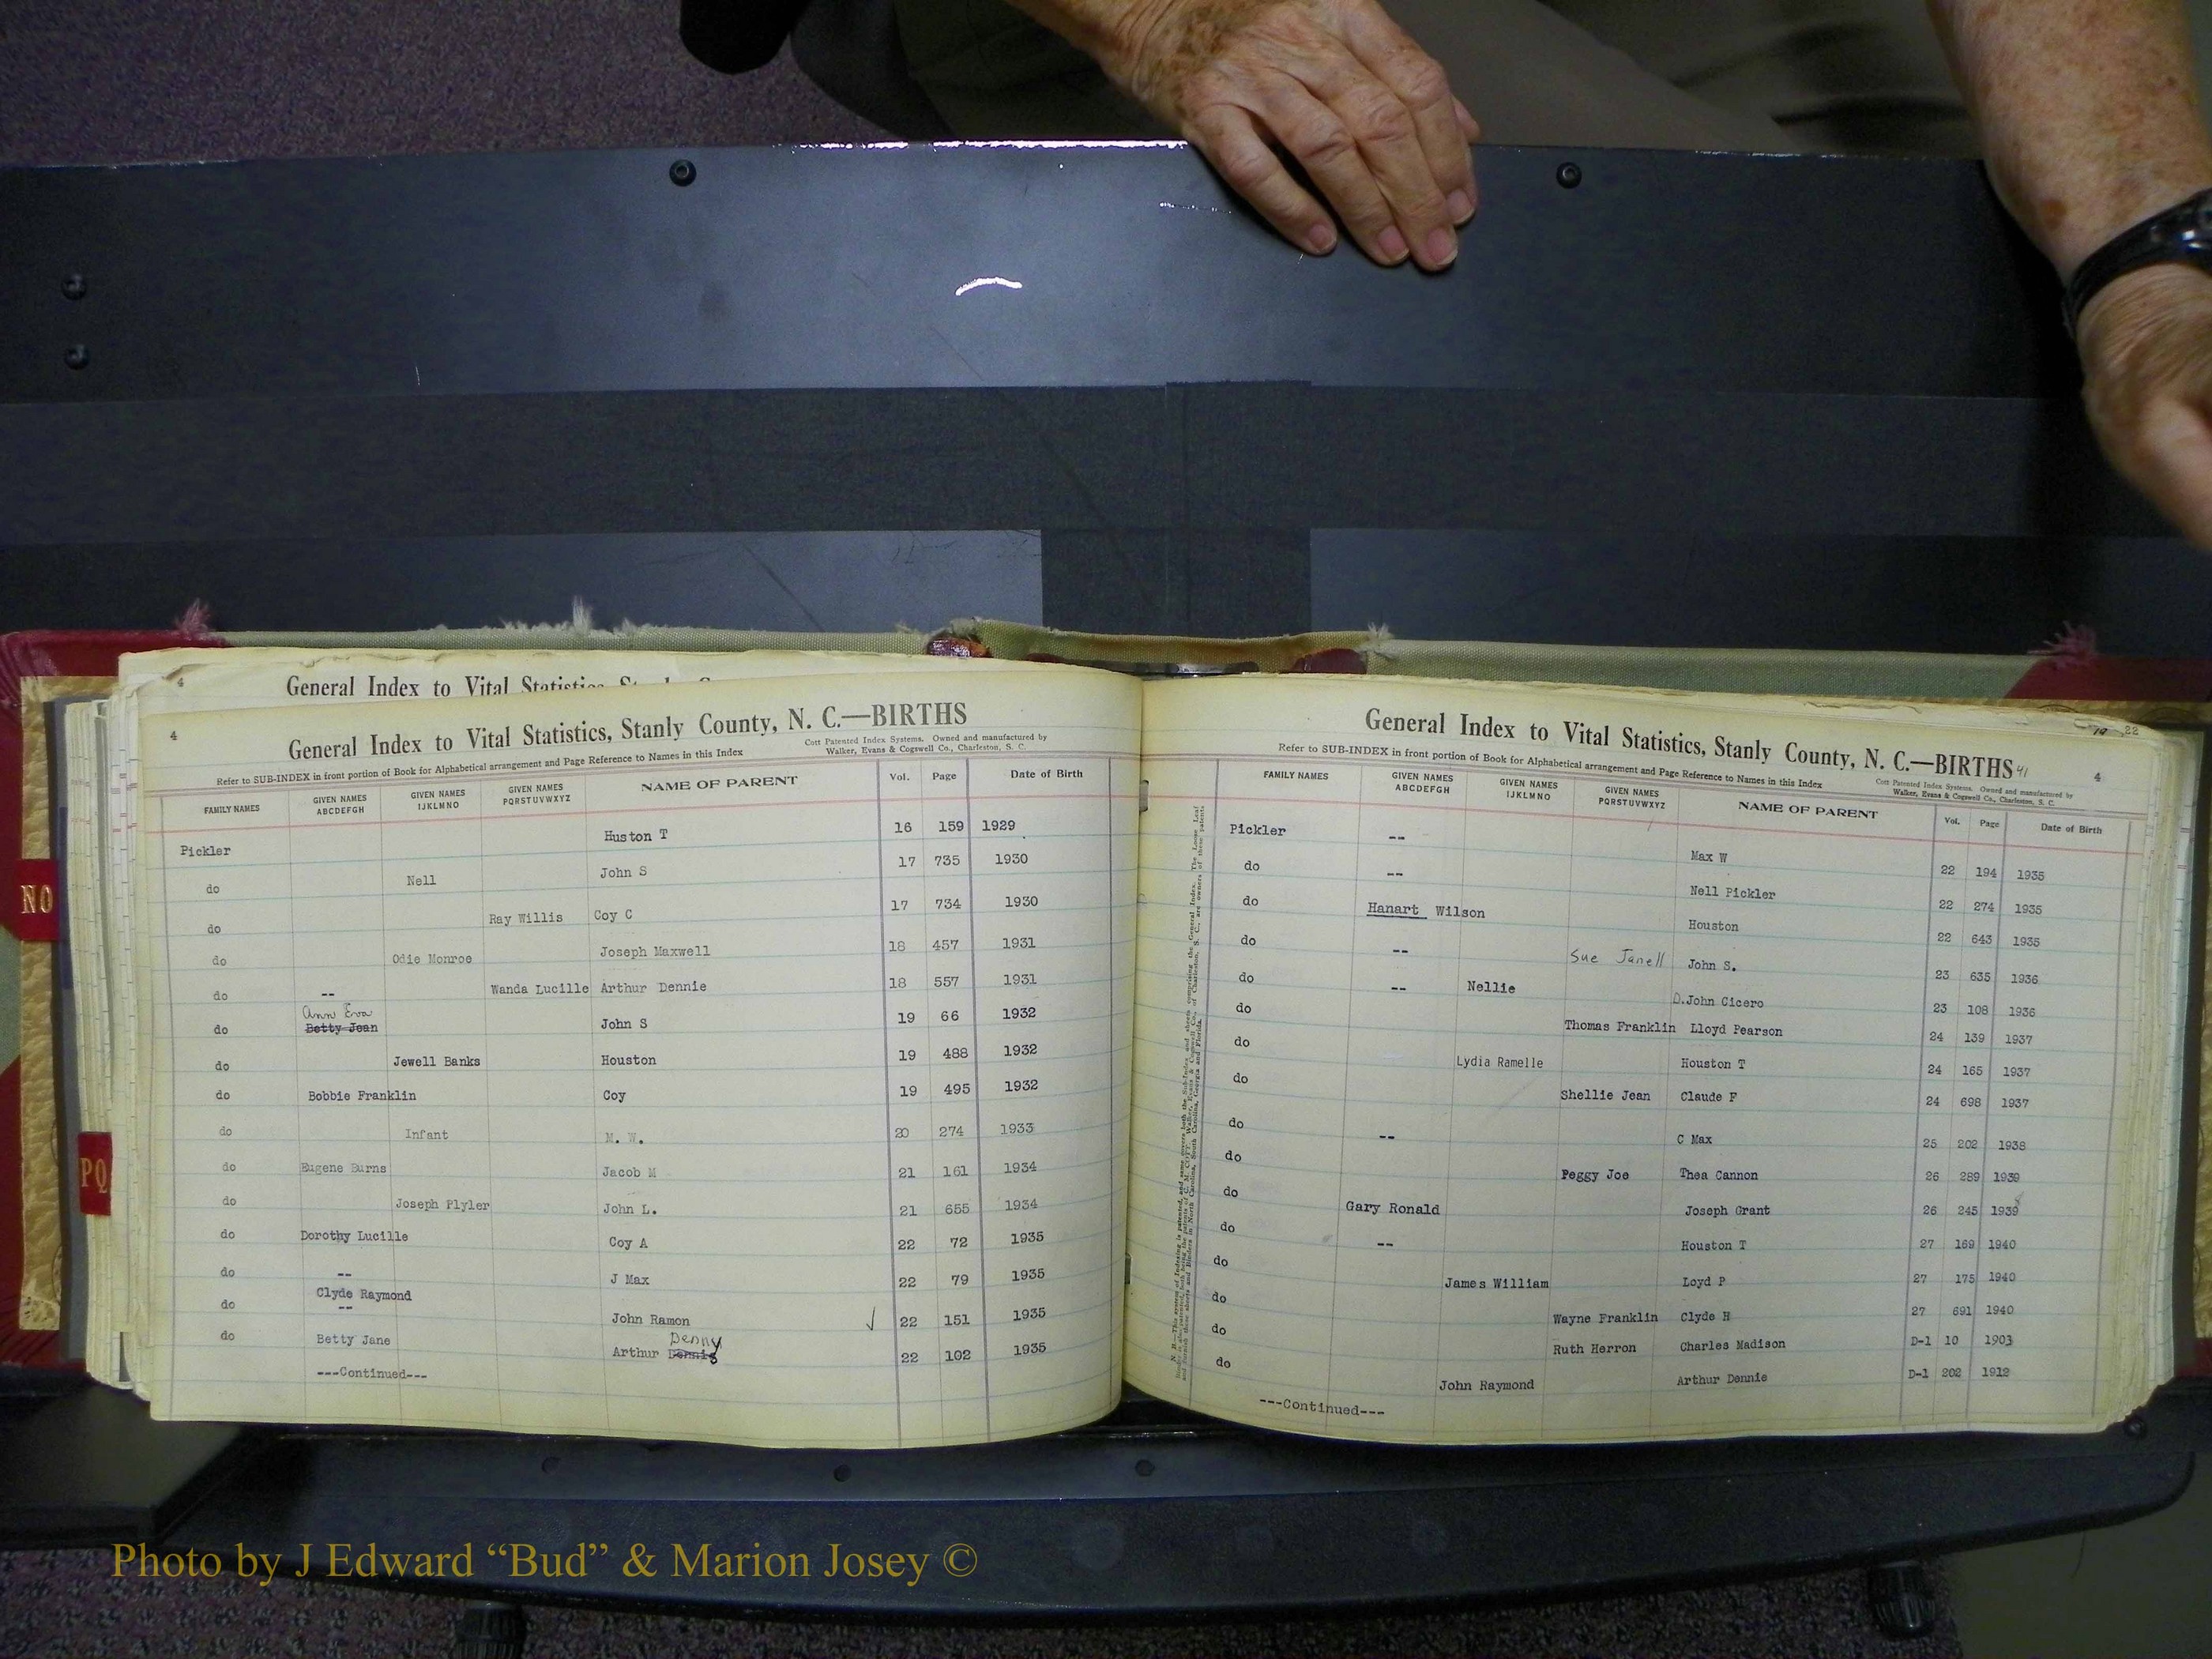 4 General Index to Vital Statistics, Stanly County, N. C.—BIRTHS
Refer to SUB-INDEX in front portion of Book for Alphabetical arrangement and Page Reference to Names in this Index
Cott Patented Index Systems. Owned and manufactured by
Walker, Evans & Cogswell Co., Charleston, S. C.
FAMILY NAMES GIVEN NAMES ABCDEFGH GIVEN NAMES IJKLMNO GIVEN NAMES PQRSTUVWXYZ NAME OF PARENT Vol. Page Date of Birth
Pickler Huston T 16 159 1929
do Nell John S 17 735 1930
do Ray Willis Coy C 17 734 1930
do Odie Monroe Joseph Maxwell 18 457 1931
do -- Wanda Lucille Arthur Dennie 18 557 1931
Ann Eva
do Betty Jean John S 19 66 1932
do Jewell Banks Houston 19 488 1932
do Bobbie Franklin Coy 19 495 1932
do Infant M. W. 20 274 1933
do Eugene Burns Jacob M 21 161 1934
do Joseph Plyler John L. 21 655 1934
do Dorothy Lucille Coy A 22 72 1935
do -- J Max 22 79 1935
Clyde Raymond
do -- John Ramon 22 151 1935
Denny
do Betty Jane Arthur Dennis 22 102 1935
---Continued---
NO
PQ
19 22
General Index to Vital Statistics, Stanly County, N. C.—BIRTHS 41 4
Refer to SUB-INDEX in front portion of Book for Alphabetical arrangement and Page Reference to Names in this Index
Cott Patented Index Systems. Owned and manufactured by
Walker, Evans & Cogswell Co., Charleston, S. C.
FAMILY NAMES GIVEN NAMES ABCDEFGH GIVEN NAMES IJKLMNO GIVEN NAMES PQRSTUVWXYZ NAME OF PARENT Vol. Page Date of Birth
Pickler -- Max W 22 194 1935
do -- Nell Pickler 22 274 1935
do Hanart Wilson Houston 22 643 1935
do -- Sue Janell John S. 23 635 1936
do -- Nellie D.John Cicero 23 108 1936
do Thomas Franklin Lloyd Pearson 24 139 1937
do Lydia Ramelle Houston T 24 165 1937
do Shellie Jean Claude F 24 698 1937
do -- C Max 25 202 1938
do Peggy Joe Thea Cannon 26 289 1939
do Gary Ronald Joseph Grant 26 245 1939 8
do -- Houston T 27 169 1940
do James William Loyd P 27 175 1940
do Wayne Franklin Clyde H 27 691 1940
do Ruth Herron Charles Madison D-1 10 1903
do John Raymond Arthur Dennie D-1 202 1912
---Continued---
Photo by J Edward “Bud” & Marion Josey ©